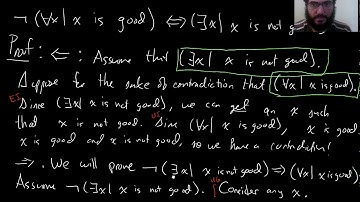 ¬(∀x| x is good) ⟺ (∃x| x is not good
Proof: ⇐: Assume that (∃x| x is not good).
Suppose for the sake of contradiction that (∀x| x is good).
EI Since (∃x| x is not good), we can get an x such
that x is not good. US Since (∀x| x is good), x is good.
x is good and x is not good, so we have a contradiction!
⇒. We will prove ¬(∃x| x is not good) ⇒ (∀x| x is good)
Assume ¬(∃x| x is not good). UG Consider any x.